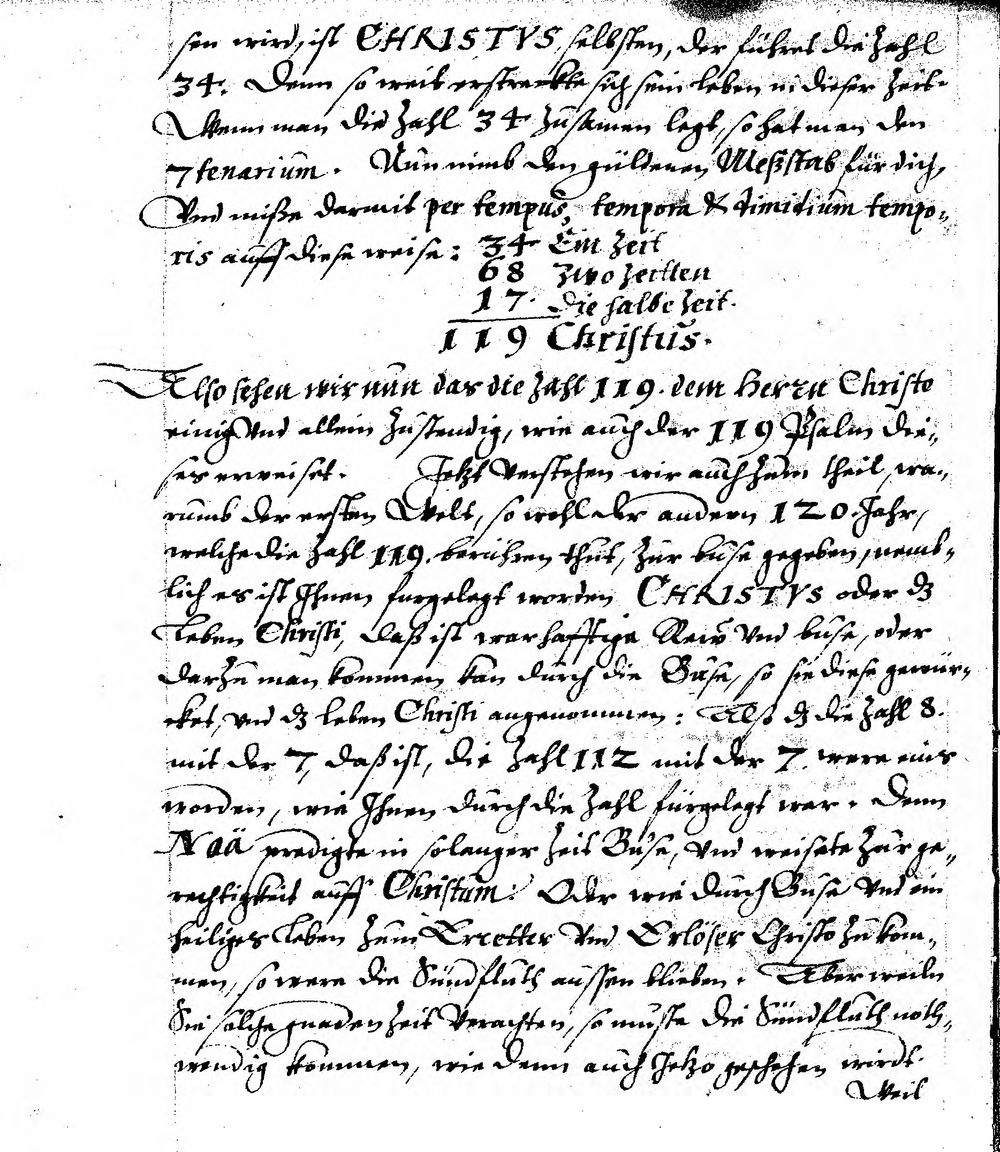 sen wird, ist CHRISTVS selbsten, der führet die Zahl
34. Denn so weit erstreckte sich sein leben in dieser Zeit.
Wenn man die Zahl 34 zusamen legt, so hat man den
7tenarium. Nun nimb den güldenen Meßstab für dich,
Vnd miße darmit per tempus, tempora & dimidium tempo-
ris auff diese weise: 34 Ein Zeit
68 Zwo Zeitten
17. die halbe Zeit.
119 Christus.
Also sehen wir nun das die Zahl 119. dem Herrn Christo
einig Vnd allein Zustendig, wie auch der 119 Psalm die-
ses erweiset. Jetzt Verstehen wir auch zum theil, wa-
rumb der ersten Welt, so wohl der andern 120. Jahr,
welche die Zahl 119. berühren thut, Zur buse gegeben, nemb-
lich es ist Ihnen furgelegt worden CHRISTVS oder dz
Leben Christi, daß ist warhafftige Rew Vnd buse, oder
darzu man kommen kan durch die Buse, so sie diese gewür-
cket, Vnd dz leben Christi angenommen: Alß dz die Zahl 8.
mit der 7, daß ist, die Zahl 112 mit der 7. were eins
worden, wie Ihnen durch die Zahl fürgelegt war. Denn
Noä predigte in solanger Zeit Buse, Vnd weisete Zur ge-
rechtigkeit auff Christum: Oder wie durch Buse Vnd ein
heiliges Leben Zum Erretter Vnd Erlöser Christo zu kom-
men, so were die Sündfluth aussen blieben. Aber weiln
Sie solche gnaden Zeit Verachten, so muste die Sündfluth noth-
wendig kommen, wie denn auch Jetzo geschehen wirdt.
Weil